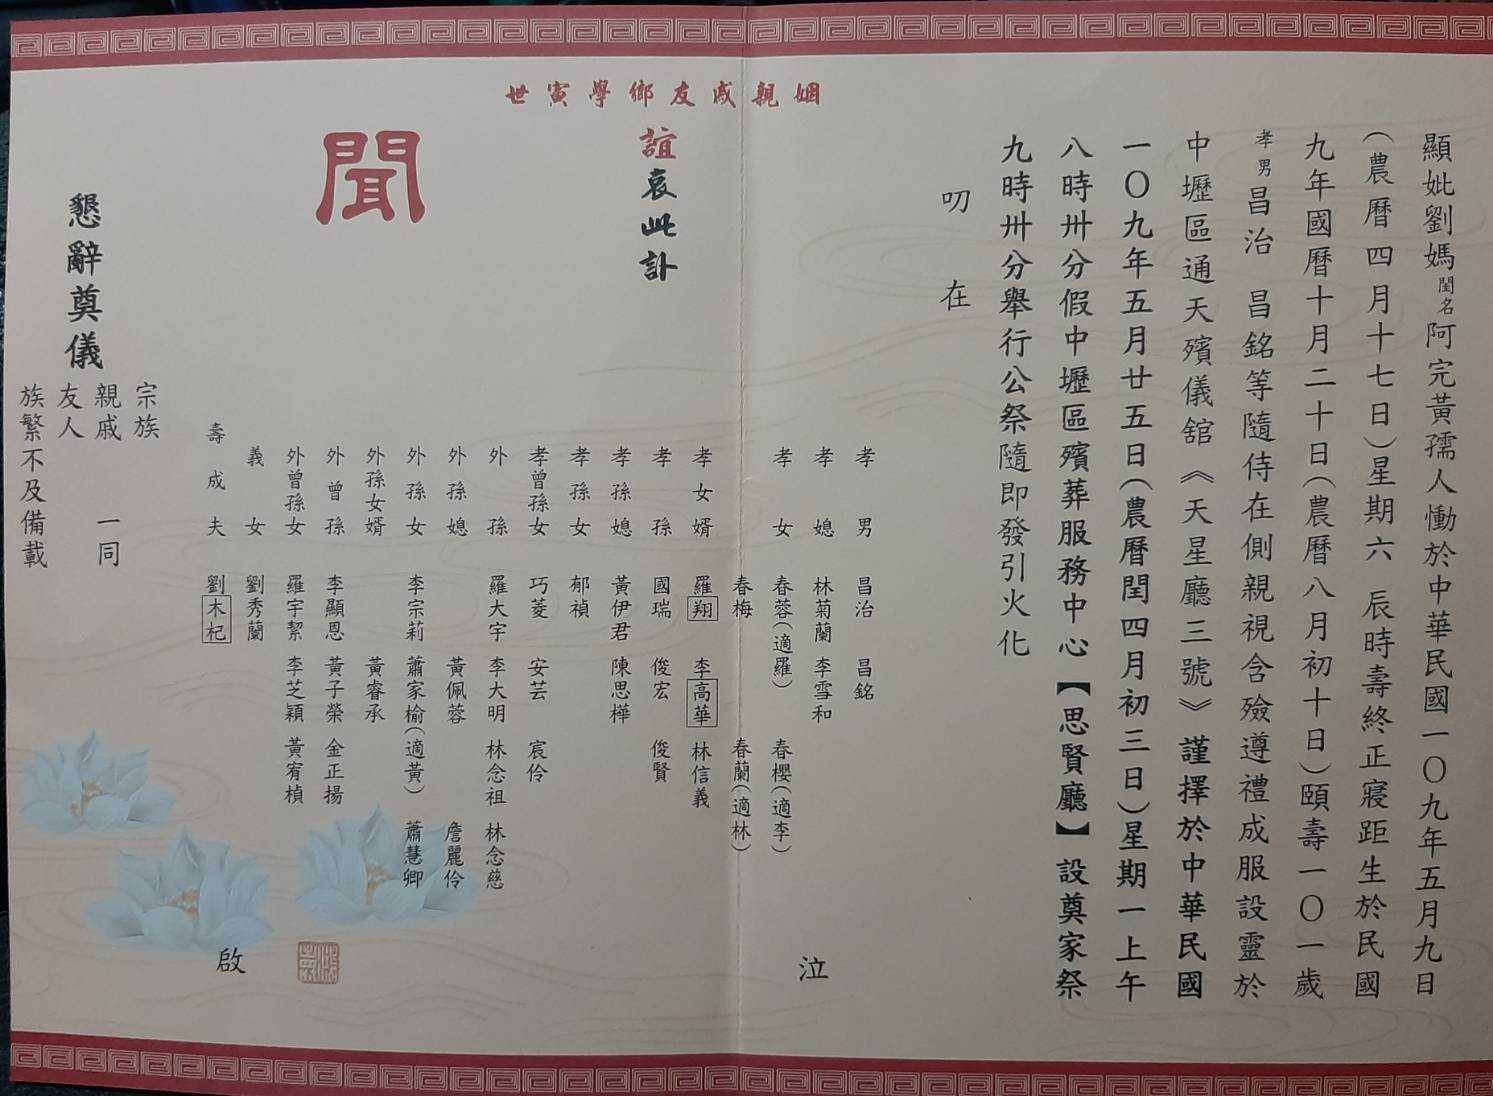 顯妣劉媽閨名阿完黃孺人慟於中華民國一〇九年五月九日
(農曆四月十七日)星期六 辰時壽終正寢距生於民國
九年國曆十月二十日(農曆八月初十日)頤壽一〇一歲
孝男昌治 昌銘等隨侍在側親視含殮遵禮成服設靈於
中壢區通天殯儀舘《天星廳三號》謹擇於中華民國
一〇九年五月廿五日(農曆閏四月初三日)星期一上午
八時卅分假中壢區殯葬服務中心【思賢廳】設奠家祭
九時卅分舉行公祭隨即發引火化
叨 在
姻親戚友鄉學寅世
誼哀此訃
聞
孝男 昌治 昌銘
孝媳 林菊蘭 李雪和
孝女 春蓉(適羅) 春櫻(適李)
春梅 春蘭(適林)
孝女婿 羅翔 李高華 林信義
孝孫 國瑞 俊宏 俊賢
孝孫媳 黃伊君 陳思樺
孝孫女 郁禎
孝曾孫女 巧菱 安芸 宸伶
外孫 羅大宇 李大明 林念祖 林念慈
外孫媳 黃佩蓉 詹麗伶
外孫女 李宗莉 蕭家榆(適黃) 蕭慧卿
外孫女婿 黃睿承
外曾孫 李顯恩 黃子榮 金正揚
外曾孫女 羅宇絜 李芝穎 黃宥楨
義女 劉秀蘭
壽成夫 劉木杞
泣
啟
宗族
親戚 一同
友人
族繁不及備載
懇辭奠儀